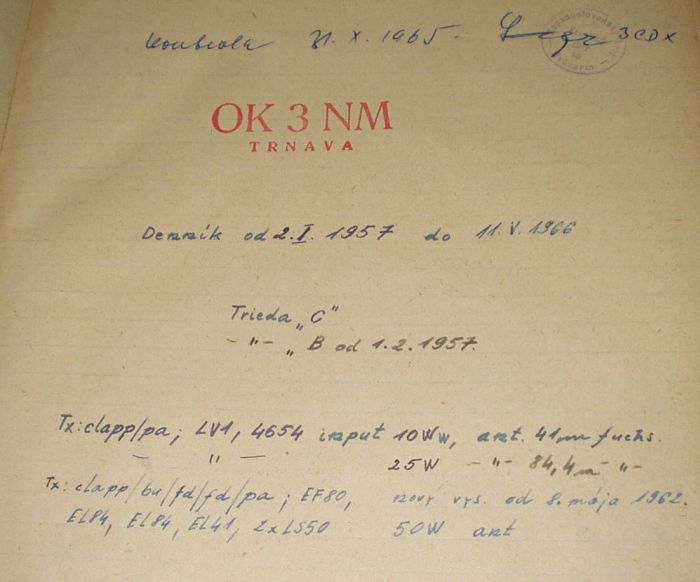 Kontrola 31. X. 1965. 3CDX
OK 3 NM
TRNAVA
Denník od 2.I. 1957 do 11.V.1966
Trieda „C"
— " — „B od 1.2.1957.
Tx: clapp/pa; LV1, 4654 input 10Ww, ant. 41m fuchs.
— " — 25W — " — 84,4m — " —
Tx: clapp/bu/fd/fd/pa ; EF80, nový vys. od 8. mája 1962.
EL84, EL84, EL41, 2xLS50 50W ant